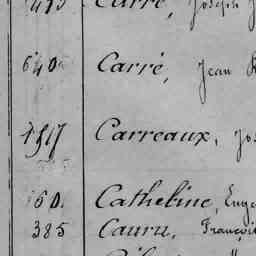 Carré, Joseph
640 Carré, Jean
1517 Carreaux,
160. Catheline, Eug
385 Cauru, François